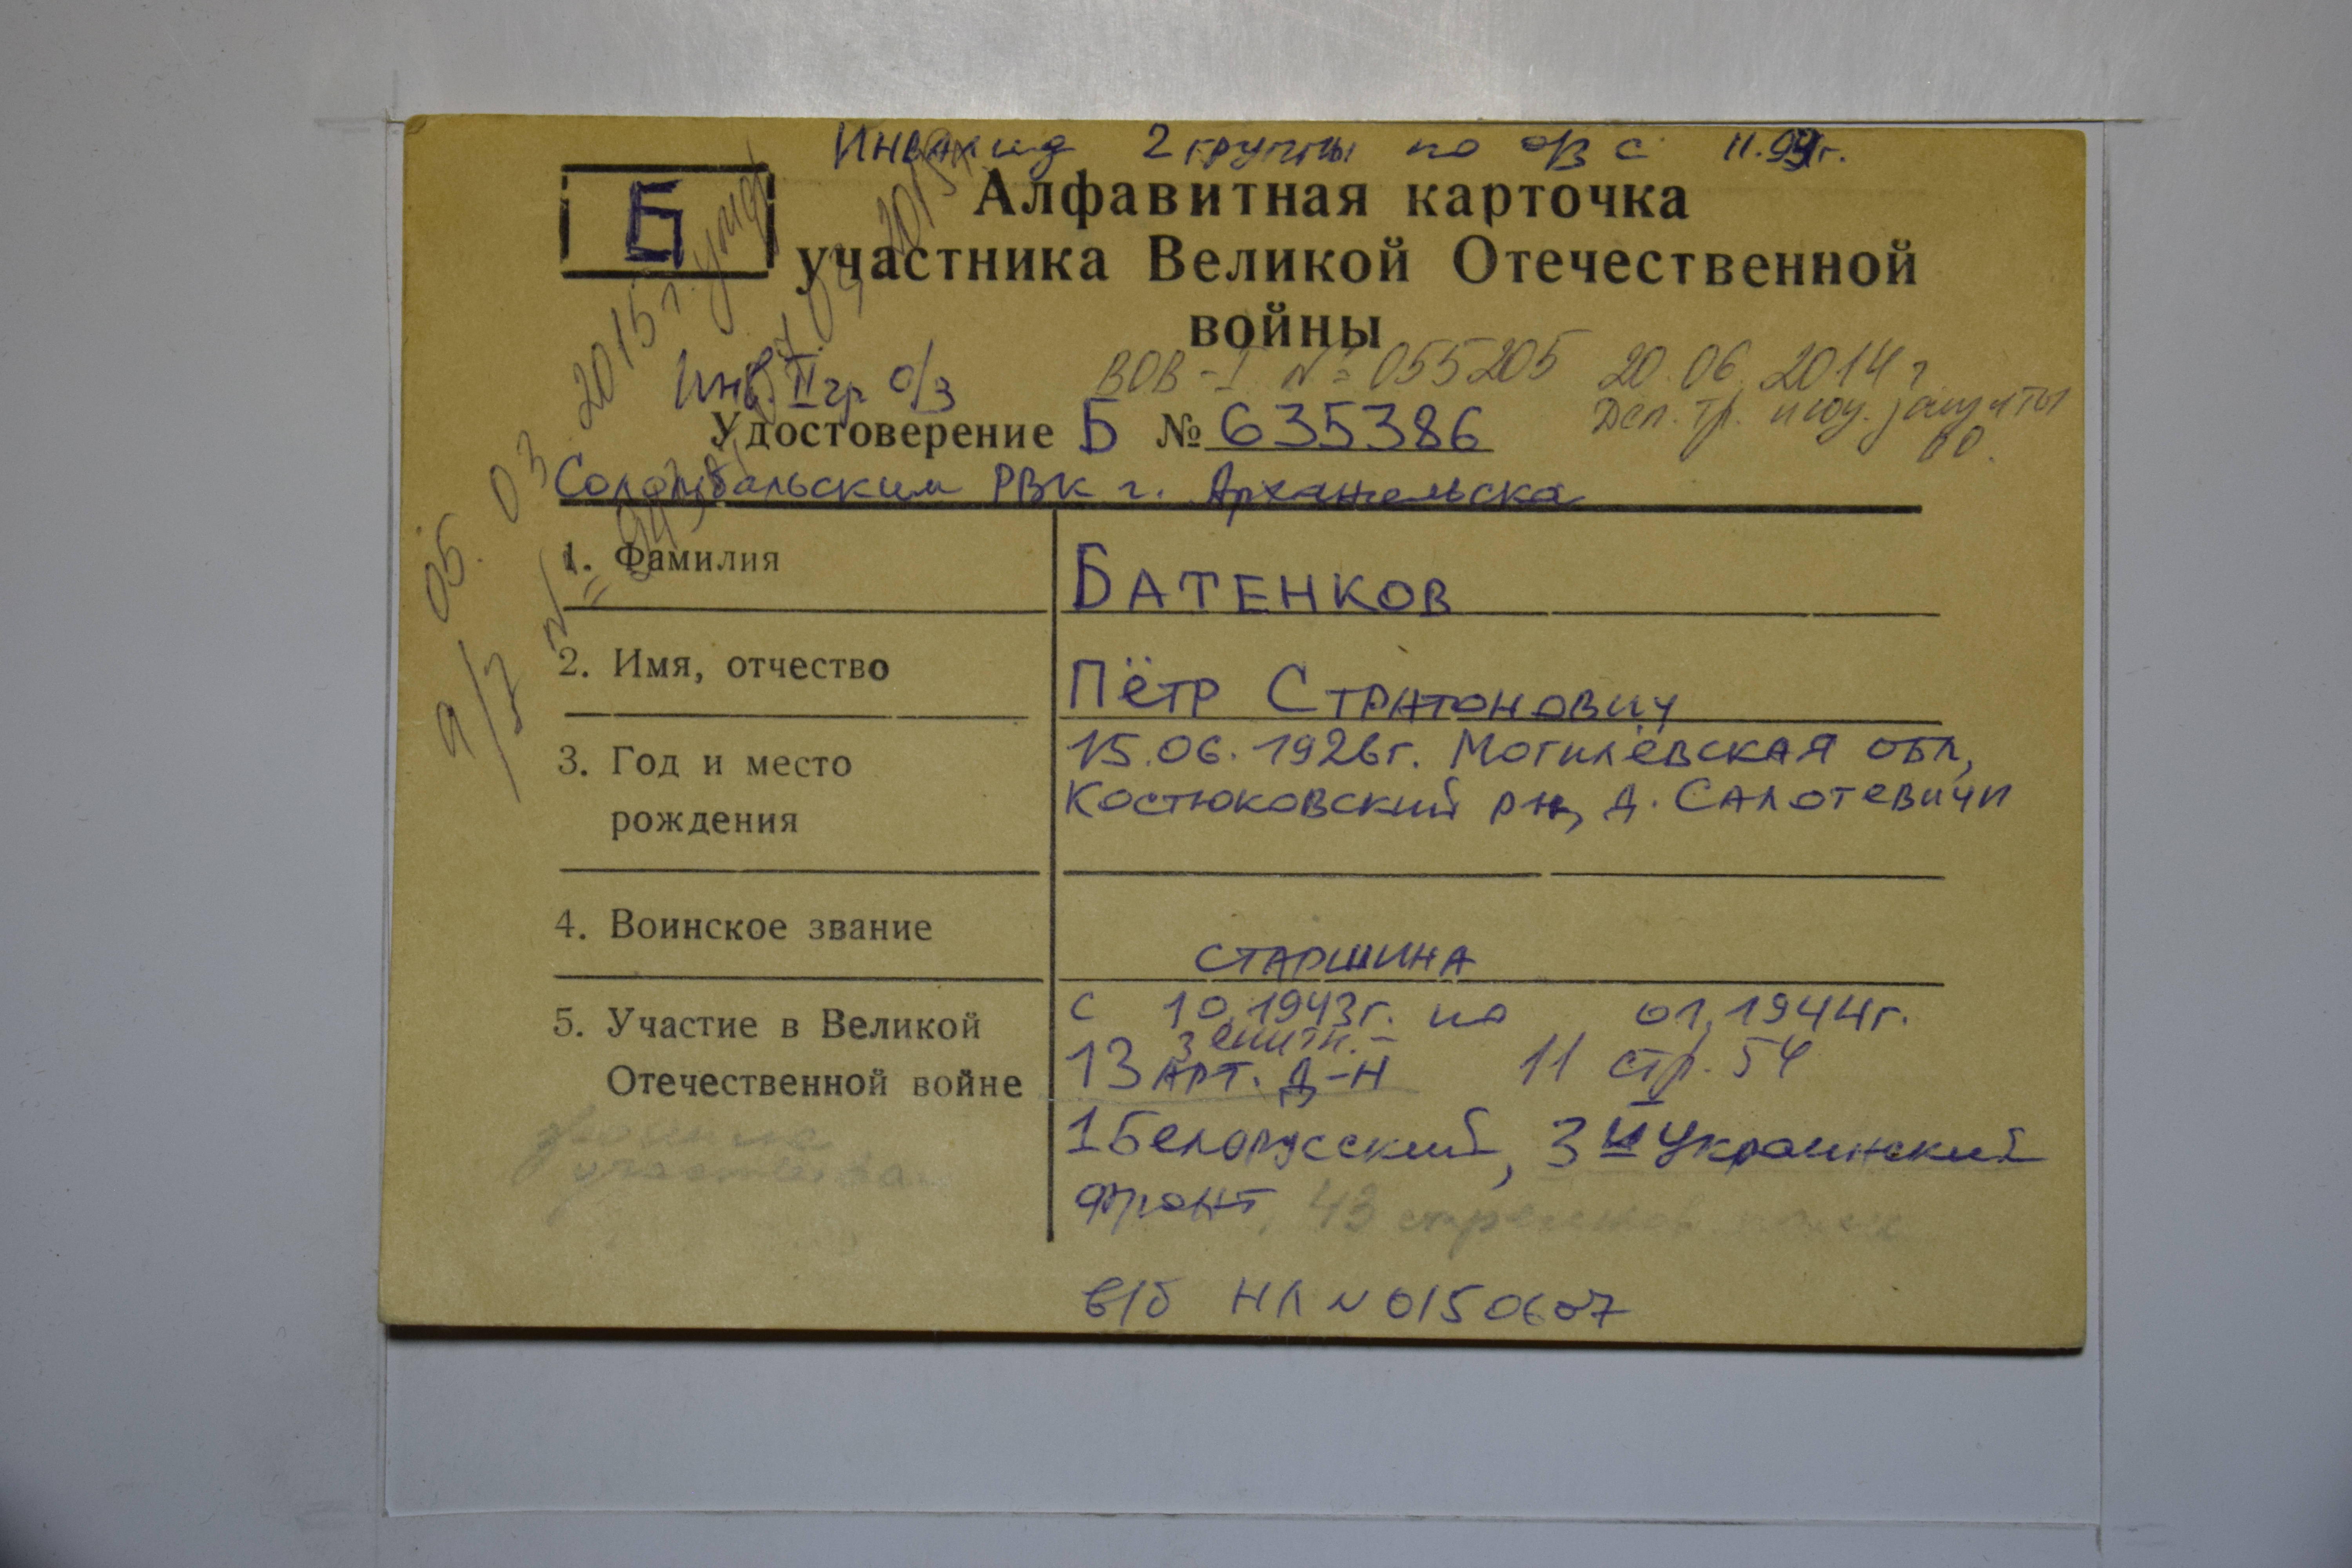 Инвалид 2 группы по о/з с 11.99г.
Б
Алфавитная карточка
участника Великой Отечественной
войны
Инв. II гр о/з
ВОВ-I № 055205 20.06.2014 г
Деп. тр. и соц. защиты
Удостоверение Б № 635386
Соломбальским РВК г. Архангельска
05.03.2015 г.
1. Фамилия
БАТЕНКОВ
2. Имя, отчество
ПЁТР СТРАТОНОВИЧ
3. Год и место
рождения
15.06.1926г. МОГИЛЁВСКАЯ ОБЛ,
КОСТЮКОВСКИЙ РН, Д. САЛОТЕВИЧИ
4. Воинское звание
СТАРШИНА
5. Участие в Великой
Отечественной войне
с 10.1943г. по 01.1944г.
зенитн.-
13 АРТ. Д-Н 11 стр. 54
1 Белорусский, 3й Украинский
фронт. 43
в/б НЛ N 0150607